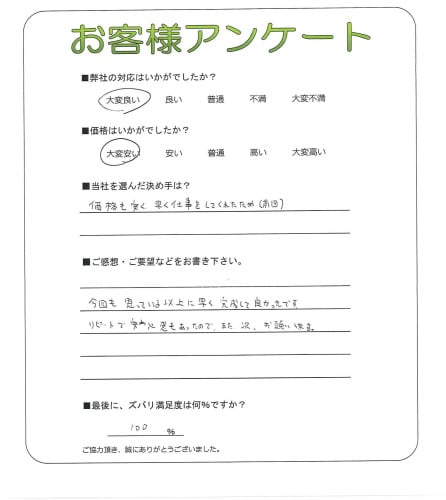 お客様アンケート
■弊社の対応はいかがでしたか?
大変良い 良い 普通 不満 大変不満
■価格はいかがでしたか?
大変安い 安い 普通 高い 大変高い
■当社を選んだ決め手は?
価格も安く 早く仕事をしてくれたため(前回)
■ご感想・ご要望などをお書き下さい。
今回も思っていた以上に早く完成して良かったです
リピートで安心感もあったので、また 次、お願い
■最後に、ズバリ満足度は何%ですか?
100 %
ご協力頂き、誠にありがとうございました。